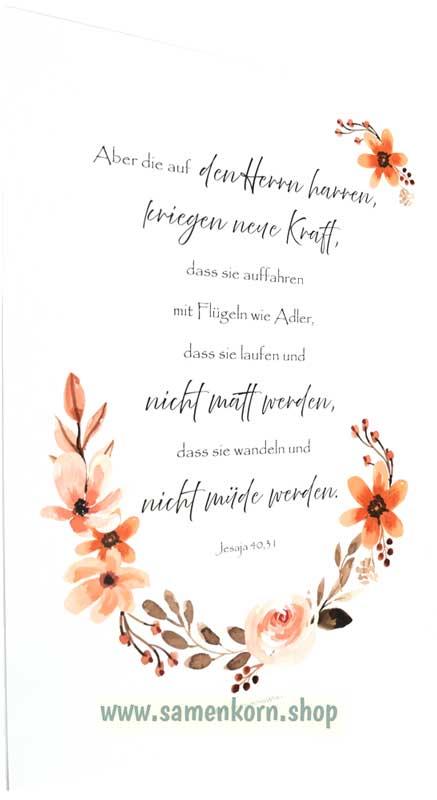 Aber die auf den Herrn harren,
kriegen neue Kraft,
dass sie auffahren
mit Flügeln wie Adler,
dass sie laufen und
nicht matt werden,
dass sie wandeln und
nicht müde werden.
Jesaja 40,31
www.samenkorn.shop